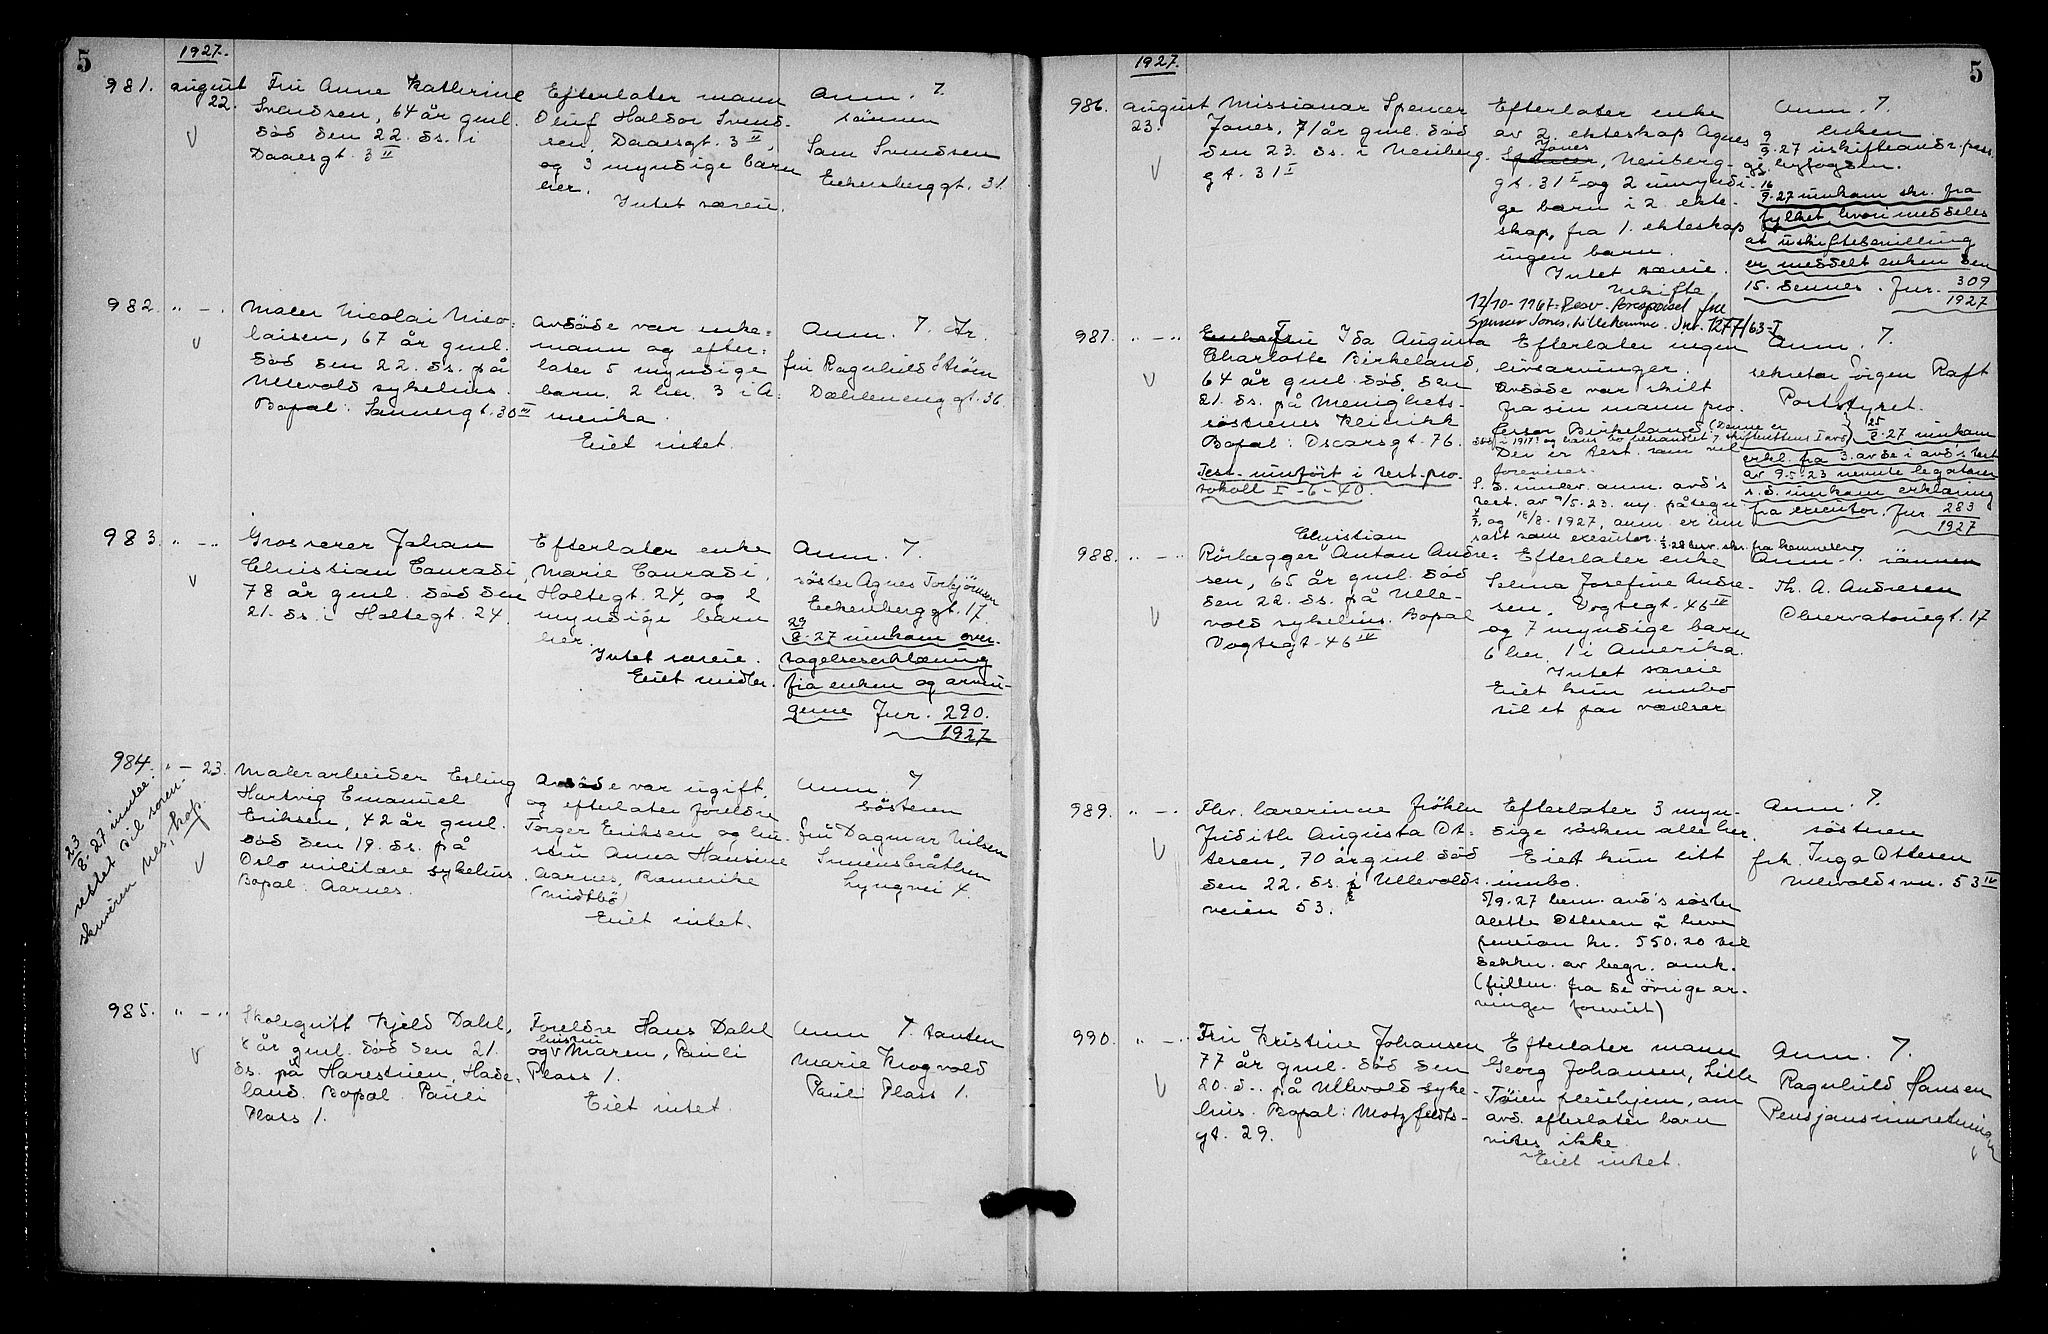 5
1927.
981. august 22.
Fru Anne Kathrine
Svendsen, 64 år gml.
död den 22. ds. i
Daaesgt. 3 II
Efterlater mann
Oluf Haldor Svend-
sen, Daaesgt. 3 II,
og 3 myndige barn
her.
Intet særeie.
Anm. 7.
sönnen
Sam Svendsen
Eckersberggt. 31.
982. " - "
Maler Nicolai Nico-
laisen, 67 år gml.
död den 22. ds. på
Ullevold sykehus.
Bopæl: Sannergt. 30 III
Avdöde var enke-
mann og efter-
later 5 myndige
barn. 2 her. 3 i A-
merika.
Eiet intet.
Anm. 7.
fru Ragnhild Ström
Dæhleneng gt. 36.
983. " - "
Grosserer Johan
Christian Conradi,
78 år gml. död den
21. ds. i Holtegt. 24.
Efterlater enke
Marie Conradi,
Holtegt. 24, og 2
myndige barn
her.
Intet særeie.
Eiet midler.
Anm. 7.
söster Agnes Torbjörnsen
Eckersberggt. 17.
29/8-27 innkom over-
tagelseserklæring
fra enken og arvin-
gene Jnr. 290.
1927
984. " - 23.
23/8-27 innbe-
rettet til soren-
skriveren Nes, hop.
Malerarbeider Erling
Hartvig Emanuel
Eriksen, 42 år gml.
död den 19. ds. på
Oslo militære sykehus.
Bopæl: Aarnes.
Avdöde var ugift
og efterlater foreldre
Torger Eriksen og hu-
stru Anna Hansine
Aarnes, Romerike
(Midtbö)
Eiet intet.
Anm 7
Sösteren
fru Dagmar Nilsen
Svensbråthen
Lyngvei 4.
985. " - "
Skolegutt Kjeld Dahl,
8 år gml. död den 21.
ds. på Harestuen, Hade-
land. Bopæl. Pauli
Plass 1.
Foreldre Hans Dahl
og hustru Maren, Pauli
Plass 1.
Eiet intet.
Anm 7. tanten
Marie Krogvold
Pauli Plass 1.
5
1927.
986. august 23.
Missionær Spencer
Jones, 71 år gml. död
den 23. ds. i Neuberg-
gt. 31 I
Efterlater enke
av 2. ekteskap Agnes
Jones
Spencer, Neuberg-
gt. 31 I og 2 umyndi-
ge barn i 2. ekte-
skap, fra 1. ekteskap
ingen barn.
Intet særeie.
Uskifte
12/10-1967: Besv. forespörsel fra
Spencer Jones, Lillehammer. Jnr. 1277/63-I
Anm. 7.
enken.
9/9.27 uskifteandr. pass.
gj. byfogden.
16/9.27 innkom skr. fra
fylket hvori meddeles
at uskiftebevilling
er meddelt enken den
15. dennes. Jnr. 309
1927
987. " - "
Enkefru Fru Ida Augusta
Charlotte Birkeland,
64 år gml. död, den
21. ds. på Menighets-
söstrenes Klinikk
Bopæl: Oscarsgt. 76.
Test. innfört i test. pro-
tokoll I-6-40.
Efterlater ingen
livsarvinger.
Avdöde var skilt
fra sin mann pro-
fessor Birkeland (Denne er
död i 1917 og hans bo behandlet 7. skifterettens I avd)
Der er test. som vil
forevises.
S. d. innlev. anm. avd's
test. av 9/5.23 m. påtegn.
og 18/8.1927, anm. er inn
satt som executor. 1/3.28 besv. skr. fra kemneren
Anm. 7.
sekretær Jörgen Raft
Poststyret.
25/8.27 innkom
erkl. fra 3. av de i avd's test
av 9.5.23 nevnte legatarer
s. d. innkom erklæring
fra executor. Jnr 283
1927
988. " - "
Christian
Rörlegger Anton Andre-
sen, 65 år gml. död
den 22. ds. på Ulle-
vold sykehus. Bopæl
Vogtsgt. 46 IV
Efterlater enke
Selma Josefine Andre-
sen, Vogtsgt. 46 IV
og 7 myndige barn
6 her. 1 i Amerika.
Intet særeie
Eiet kun innbo
til et par værelser
Anm. 7. sönnen
Th. A. Andresen
Observatoriegt. 17
989. " - "
Fhv. lærerinne fröken
Judithe Augusta Ot-
tersen, 70 år gml död
den 22. ds. i Ullevolds-
veien 53.
Efterlater 3 myn-
dige sösken alle her.
Eiet kun litt
innbo.
5/9.27 bem. avd's söster
Alette Ottersen å heve
pension kr. 550.20 til
dekkn. av begr. omk.
(fullm. fra de övrige ar-
vinger forevist)
Anm. 7.
sösteren
frk. Inga Ottesen
Ullevoldsvn. 53 IV
990. " - "
Fru Kristine Johansen
77 år gml. död den
20. d. på Ullevold syke-
hus. Bopæl: Motzfeldts-
gt. 29.
Efterlater mann
Georg Johansen, Lille
Töien pleiehjem, om
avd. efterlater barn
vites ikke.
Eiet intet.
Anm. 7.
Ragnhild Hansen
Pensjonsinnretningen